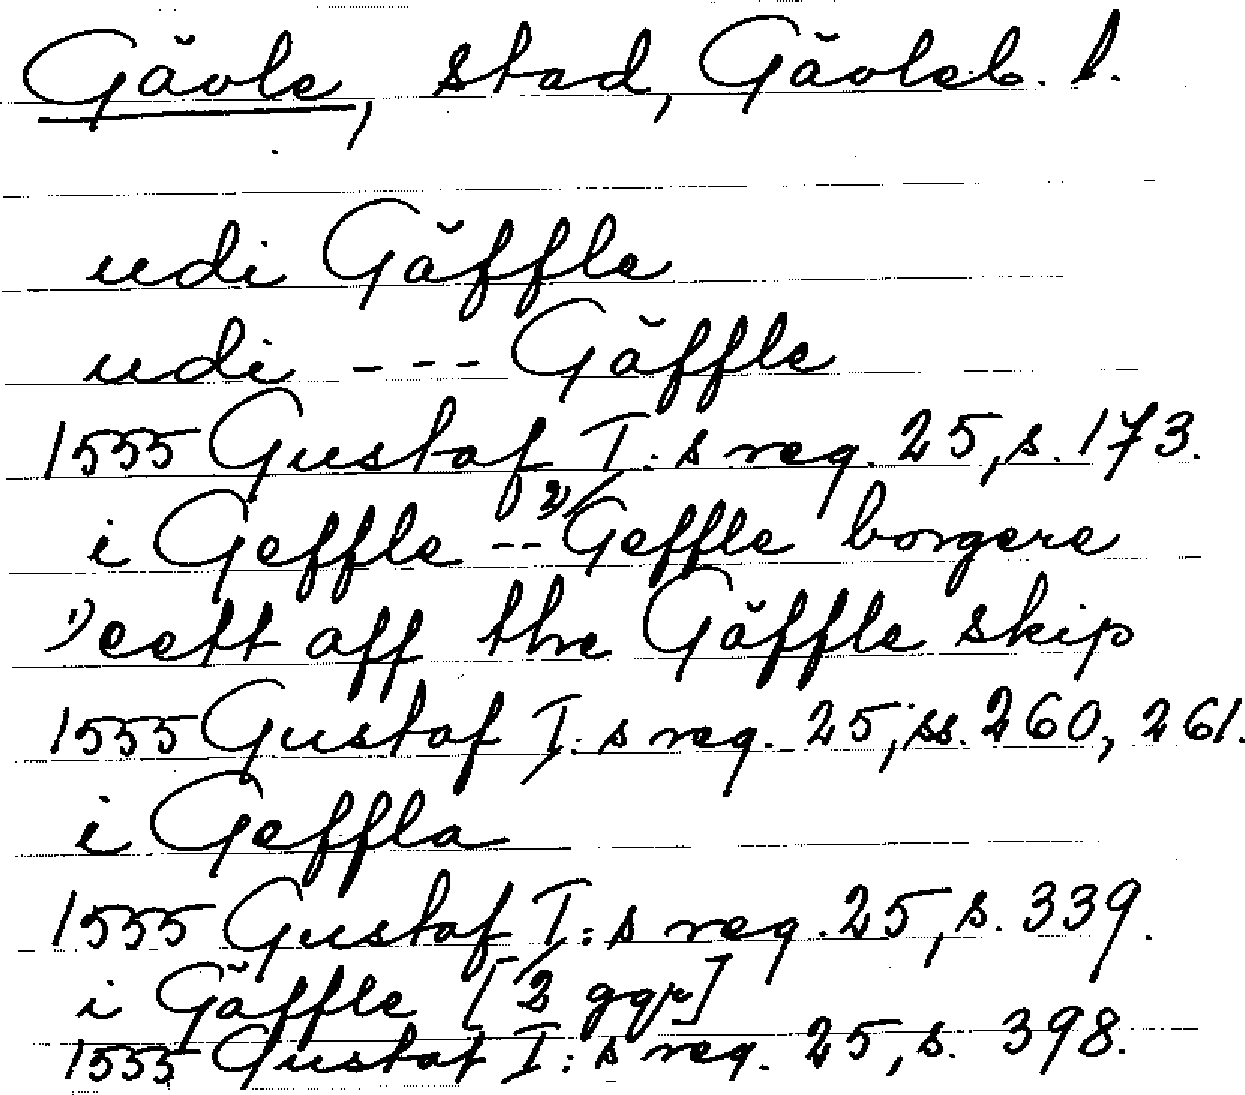 Gävle, stad, Gävleb. l.
udi Gäffle
udi --- Gäffle
1555 Gustaf I:s reg. 25, s. 173.
i Geffle -- 2) Geffle borgere
1) eett aff the Gäffle skip
1555 Gustaf I:s reg. 25, ss. 260, 261.
i Geffla
1555 Gustaf I:s reg. 25, s. 339.
i Gäffle [2 ggr]
1555 Gustaf I:s reg. 25, s. 398.